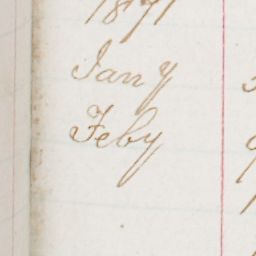 1871
Jany
Feby